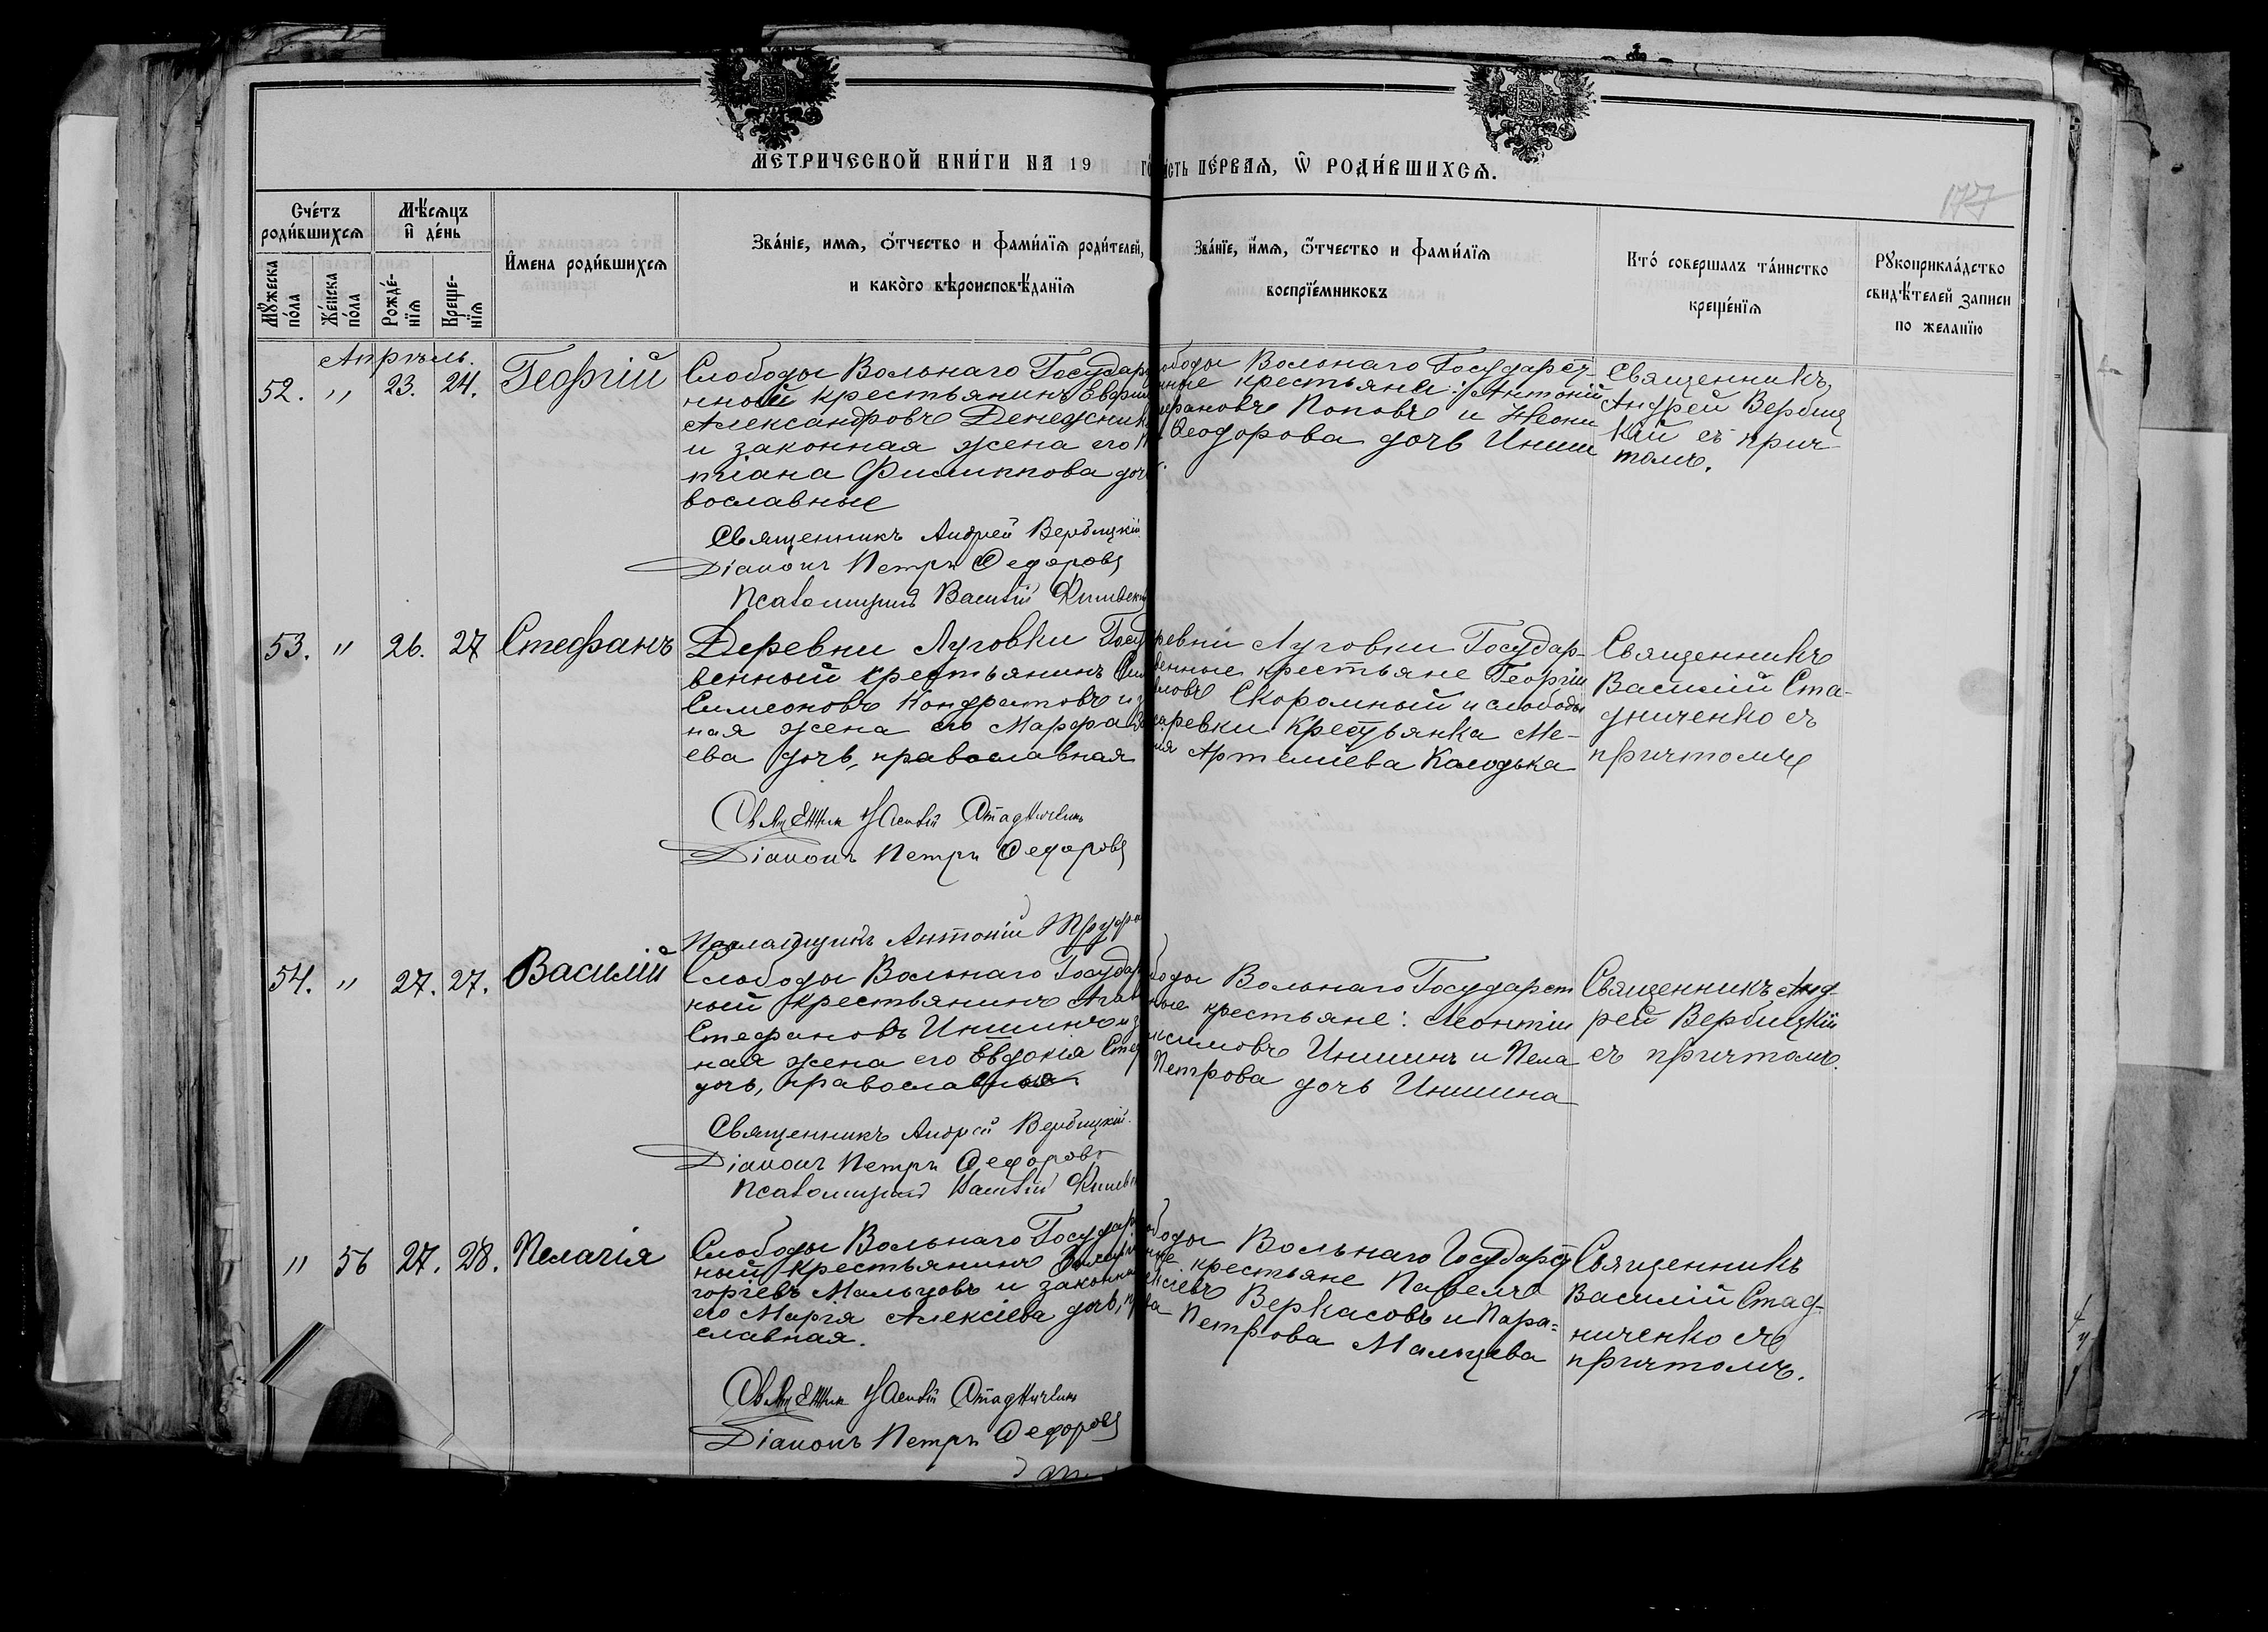 МЕТРИЧЕСКОЙ КНИ́ГИ НА 19
ПЕ́РВАѦ, Ѿ РОДИ́ВШИХСѦ.
177
Сче́тъ
роди́вшихсѧ
Мѣ́сѧцъ
и҆ де́нь
Мꙋ́жеска
по́ла
Же́нска
по́ла
Рожде́-
нїѧ
Креще-
нїѧ
И҆мена роди́вшихсѧ
Зва́нїе, имѧ, ѻ҆́тчество и фами́лїѧ роди́телей,
и како̀го вѣроисповѣ́данїѧ
Зва́нїе, и҆мѧ, ѻ҆́тчество и фами́лїѧ
воспрїе́мниковъ
Кто́ соверша́лъ та́инство
креще́нїѧ
Рꙋкоприкла́дство
свидѣ́телей записи
по жела́нїю
Апрѣль.
52. " 23. 24. Георгій
Слободы Вольнаго Государ
ный крестьянинъ
Александровъ
и законная жена его
тіана Филиппова
вославные
Священникъ Андрей Вербицкій
Діаконъ Петръ Ѳедоровъ
Псаломщикъ Василій
Вольнаго Государст-
крестьяне: Антоній
Поповъ и
Ѳеодорова дочь
Священникъ
Андрей Вербиц
кій съ прич-
томъ.
53. " 26. 27 Стефанъ
Деревни Луговки
венный крестьянинъ
Симеоновъ Кондратовъ и
ная жена его Марфа
ева дочь, православная
Священник Василій Стадниченко
Діаконъ Петръ Ѳедоровъ
Псаломщикъ Антоній
Луговки Государ-
крестьяне Георгій
Скоромный и слободы
крестьянка Ме-
Артеміева
Священникъ
Василій Ста-
дниченко съ
причтомъ
54. " 27. 27. Василій
Слободы Вольнаго Государ
ный крестьянинъ
Стефановъ Иншинъ и
ная жена его Евдокія
дочь, православные
Священникъ Андрей Вербицкій.
Діаконъ Петръ Ѳедоровъ
Псаломщикъ Василій
Вольнаго Государст
крестьяне: Леонтій
Иншинъ и Пела
Петрова дочь Иншина
Священникъ Анд-
рей Вербицкій
съ причтомъ.
" 56 27. 28. Пелагія
Слободы Вольнаго Государ
ный крестьянинъ
горгіевъ Мальцовъ и законная
его Марія Алексіева дочь,
славная.
Священник Василій Стадниченко
Діаконъ Петръ Ѳедоровъ
Вольнаго Государст
крестьяне Павелъ
Веркасовъ и Пара-
Петрова Мальцева
Священникъ
Василій Стад-
ниченко съ
причтомъ.